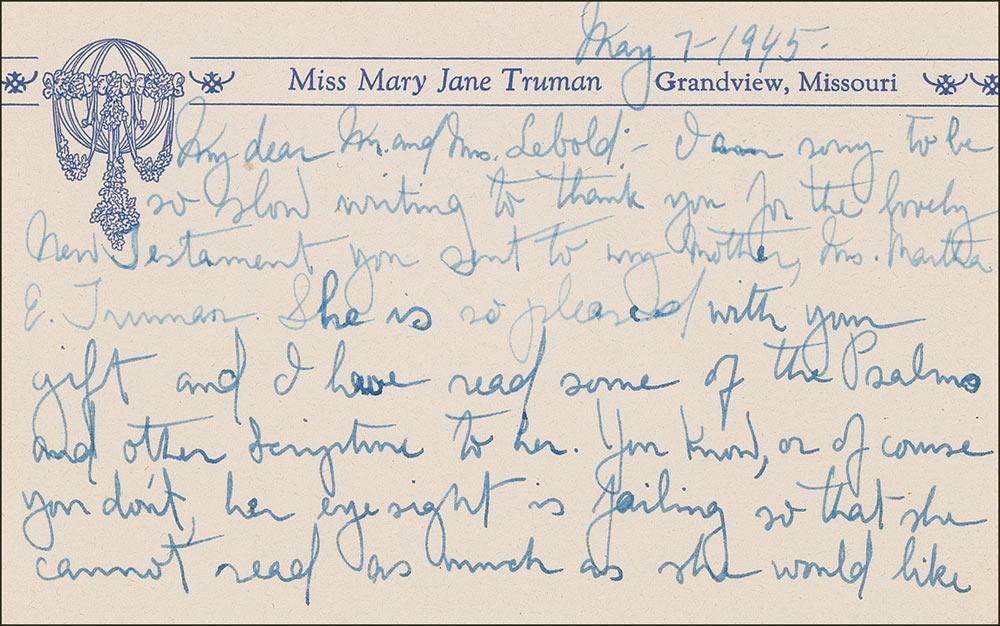 May 7-1945-
Miss Mary Jane Truman Grandview, Missouri
My dear Mr. and Mrs. Lebold:- I am sorry to be
so slow writing to thank you for the lovely
New Testament you sent to my Mother, Mrs. Martha
E. Truman. She is so pleased with your
gift and I have read some of the Psalms
and other Scripture to her. You know, or of course
you don't, her eye sight is failing so that she
cannot read as much as she would like